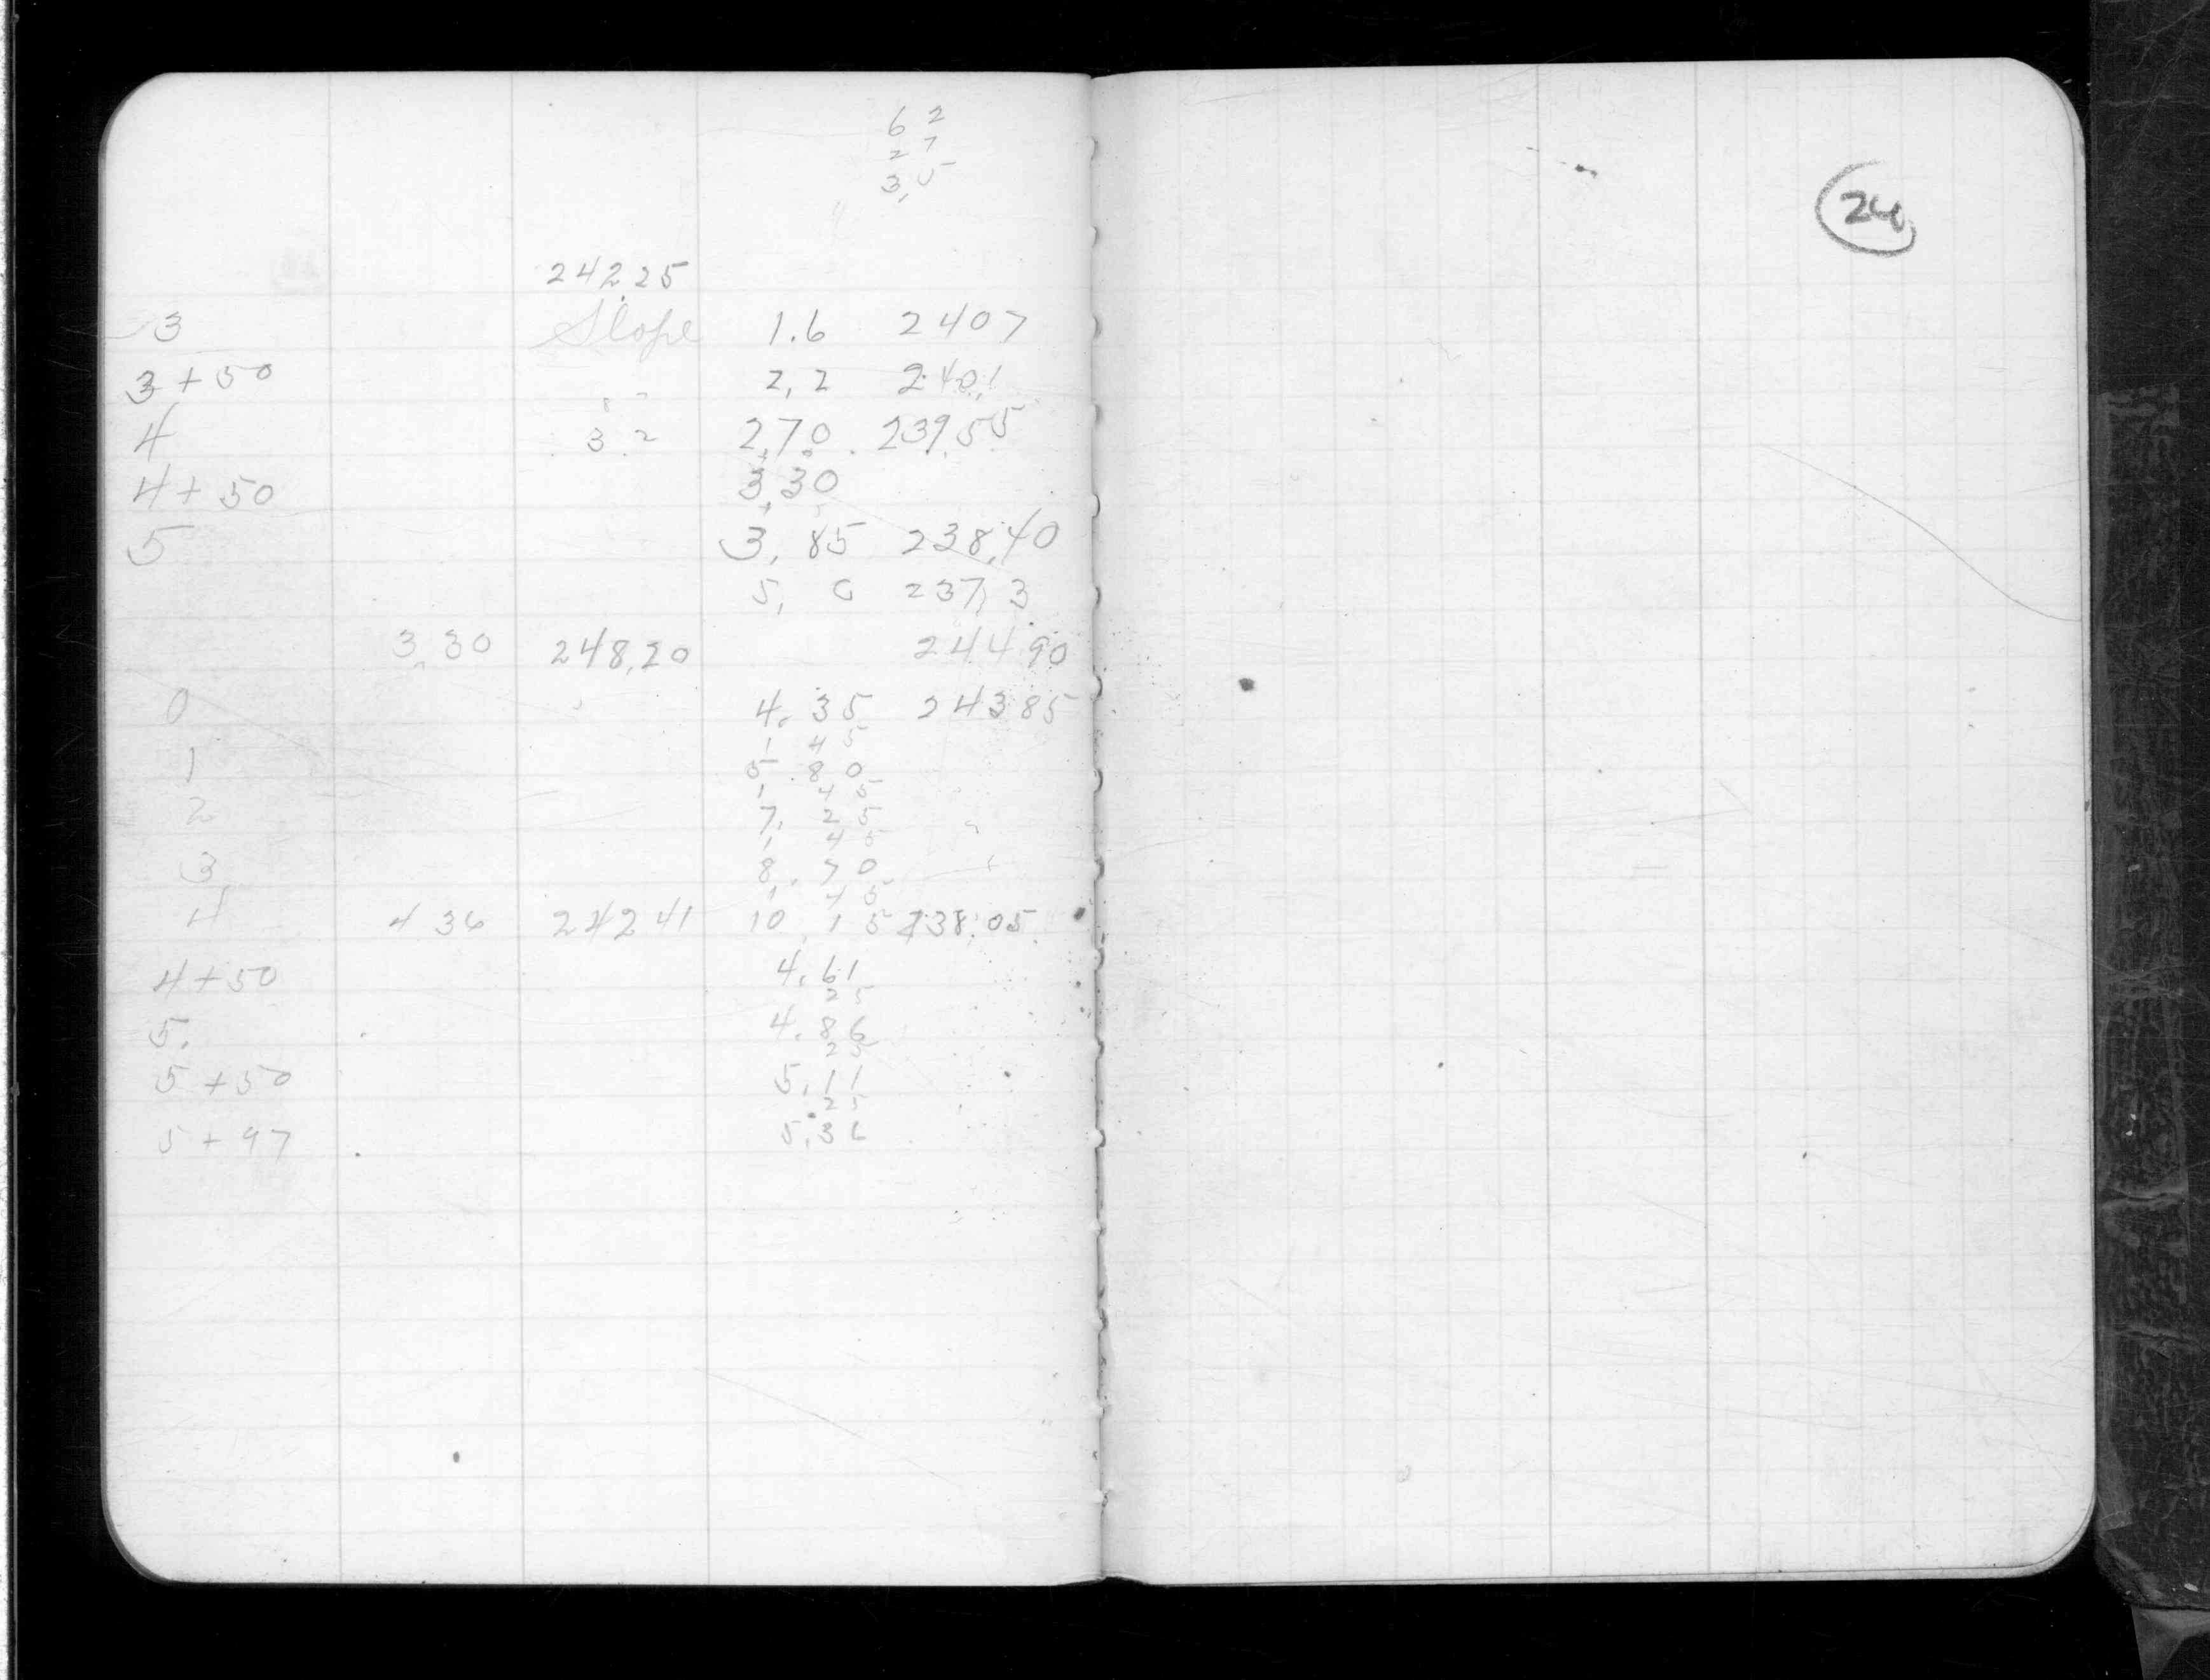 6 2
2 7
3,5
24
242.25
3 Slope 1.6 2407
3+50 2,2 240,1
4 3 2 2,70 239,55
4+50 3,30
5 3,85 238,40
5, 0 237,3
3,30 248,20 244.90
0 4.35 24385
1 45
1 5.80
1 45
2 7.25
1 45
3 8.70
1 45
4 4 36 24241 10.15 238.05
4+50 4.61
25
5. 4.86
25
5+50 5.11
25
5+97 5.36